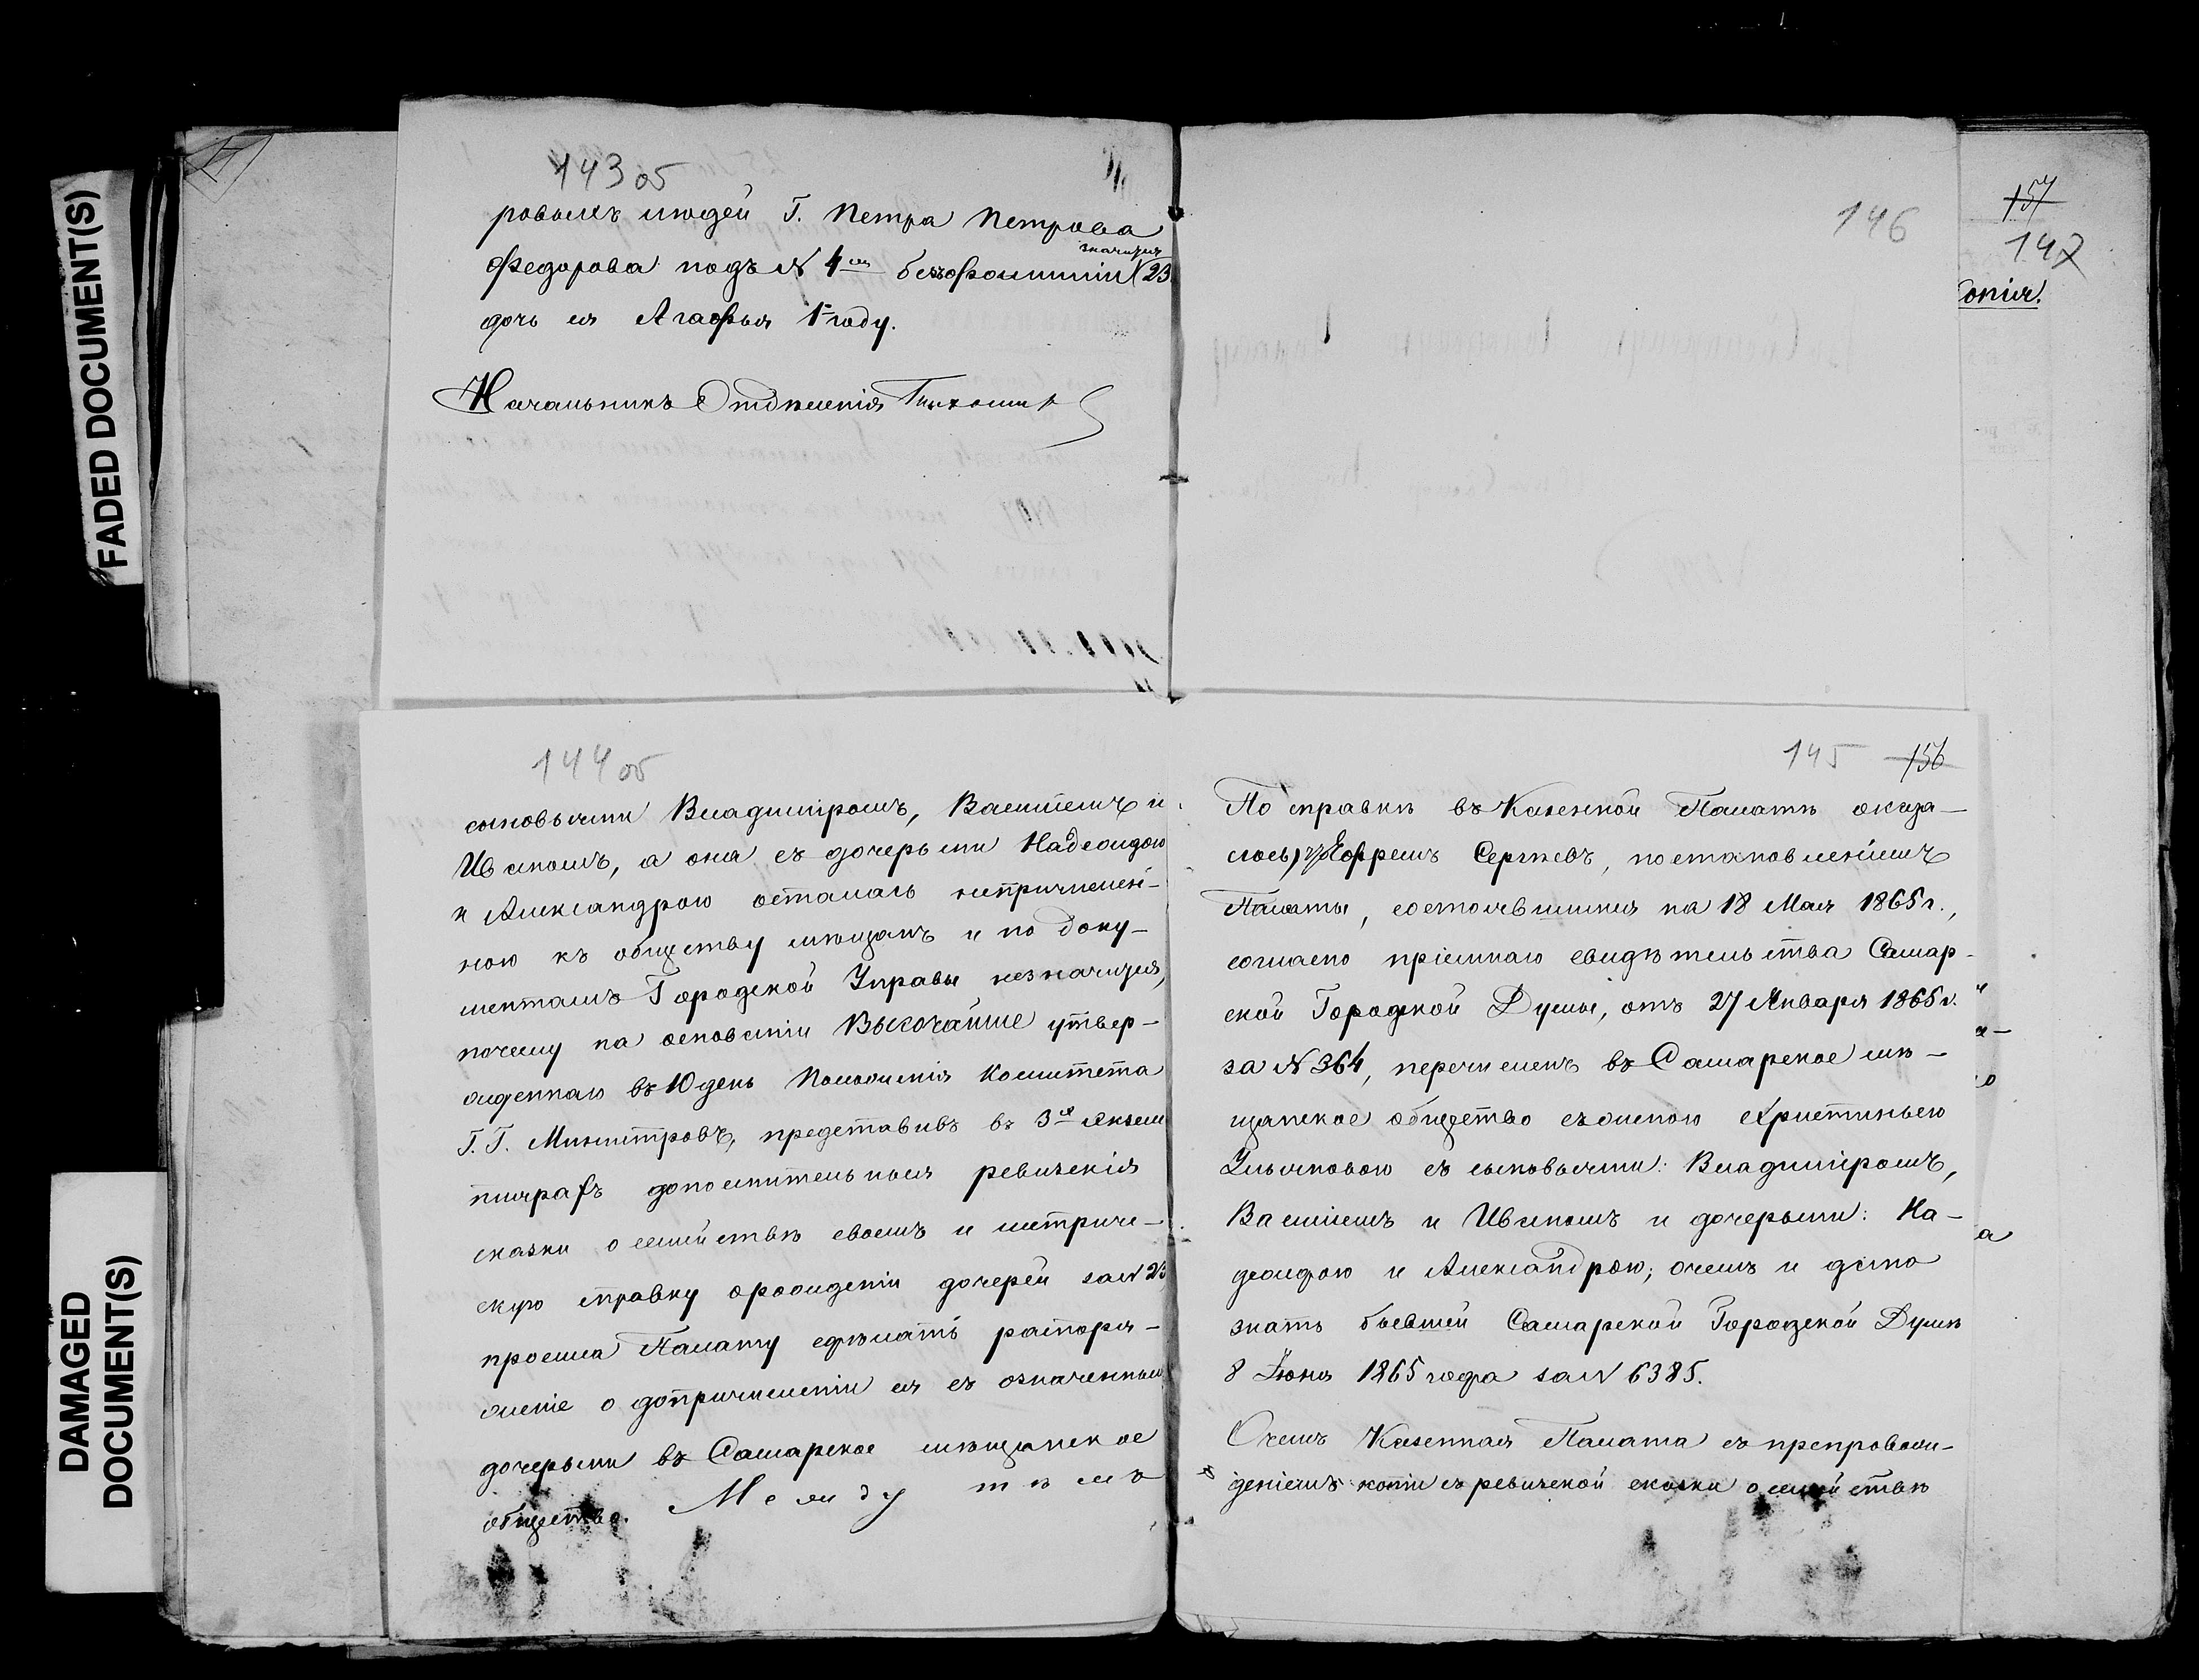 FADED DOCUMENT(S)
DAMAGED
DOCUMENT(S)
143 об
ровыхъ людей Г. Петра Петрова
значится
Федорова подъ № 4м безъ фамиліи 23
дочь ея Агафья 1 году.
Начальникъ Отдѣленія
146
157
147
Копія.
144 об
сыновьями Владиміромъ, Василіемъ и
Иваномъ, а она съ дочерьми Надеждою
и Александрою осталась непричислен-
ною къ обществу мѣщанъ и по доку-
ментамъ Городской Управы незначится,
почему на основаніи Высочайше утвер-
жденнаго въ 10 день Положенія Комитета
Г.Г. Министровъ, представивъ въ 3х экзем
плярахъ дополнительныя ревизскія
сказки о семействѣ своемъ и метриче-
скую справку о рожденіи дочерей за № 23
просила Палату сдѣлать распоря-
женіе о допричисленіи ея съ означенными
дочерьми въ Самарское мѣщанское
общество. Между тѣмъ
145 156
По справкѣ въ Казенной Палатѣ оказа-
лось, что Ефремъ Сергѣевъ, постановленіемъ
Палаты, состоявшимся на 18 Мая 1865 г.,
согласно пріемнаго свидѣтельства Самар-
ской Городской Думы, отъ 27 Января 1865 г.
за № 364, перечисленъ въ Самарское мѣ-
щанское общество съ женою Христиньею
Ульяновою съ сыновьями: Владиміромъ,
Василіемъ и Иваномъ и дочерьми: На-
деждою и Александрою; о чемъ и дано
знать бывшей Самарской Городской Думѣ
8 Іюня 1865 года за № 6385.
О чемъ Казенная Палата съ препровож-
деніемъ копіи съ ревизской сказки о семействѣ